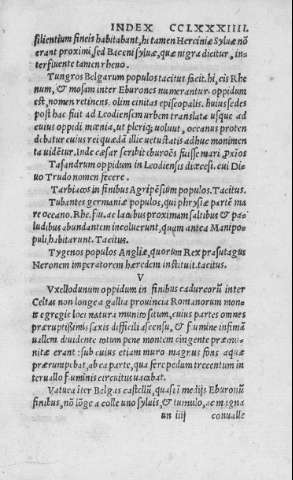 INDEX CCLXXXIIII.
silientium fineis habitabant, hi tamen Herciniæ syluæ nō
erant proximi, sed Baceni syluæ, quæ nigra dicitur, in-
terfluente tamen rheno.
Tungros Belgarum populos tacitus facit. hi, cis Rhe
num, & mosam inter Eburones numerantur. oppidum
est, nomen retinens. olim ciuitas episcopalis. huius sedes
post hac fuit ad Leodiensem urbem translata usque ad
cuius oppidi mœnia, ut pleriq; uolunt, oceanus proten
debatur cuius rei quædā illic uetustatis adhuc monimen
ta uidētur. Inde cæsar scribit eburoēs fuisse mari pxios
Taxandrum oppidum in Leodiensis diœcesi. cui Di-
uo Trudo nomen fecere.
Tarbiacos in finibus Agripēsium populos. Tacitus.
Tubantes germaniæ populos, qui phrysiæ partē ma
re oceano. Rhe. flu. ac lacibus proximam saltibus & pa-
ludibus abundantem incoluerunt, quam antea Manipo
puli, habitarunt. Tacitus.
Tygenos populos Angliæ, quorum Rex prasutagus
Neronem imperatorem hæredem instituit. tacitus.
V
Vxellodunum oppidum in finibus cadurcorū inter
Celtas non longe a gallia prouincia Romanorum mon-
te egregie loci natura munito situm, cuius partes omnes
præruptissimis saxis difficili ascensu, & flumine infimā
uallem diuidente totum pene montem cingente præmu-
nitæ erant: sub cuius etiam muro magnus fons aquæ
prærumpebat, ab ea parte, qua fere pedum trecentum in
teruallo fluminis circuitus uacabat.
Vatuca iter Belgas castellū, quasi i medijs Eburonū
finibus, nō lōge a colle uno syluis, & tumulo, ac magna
un iiij conualle